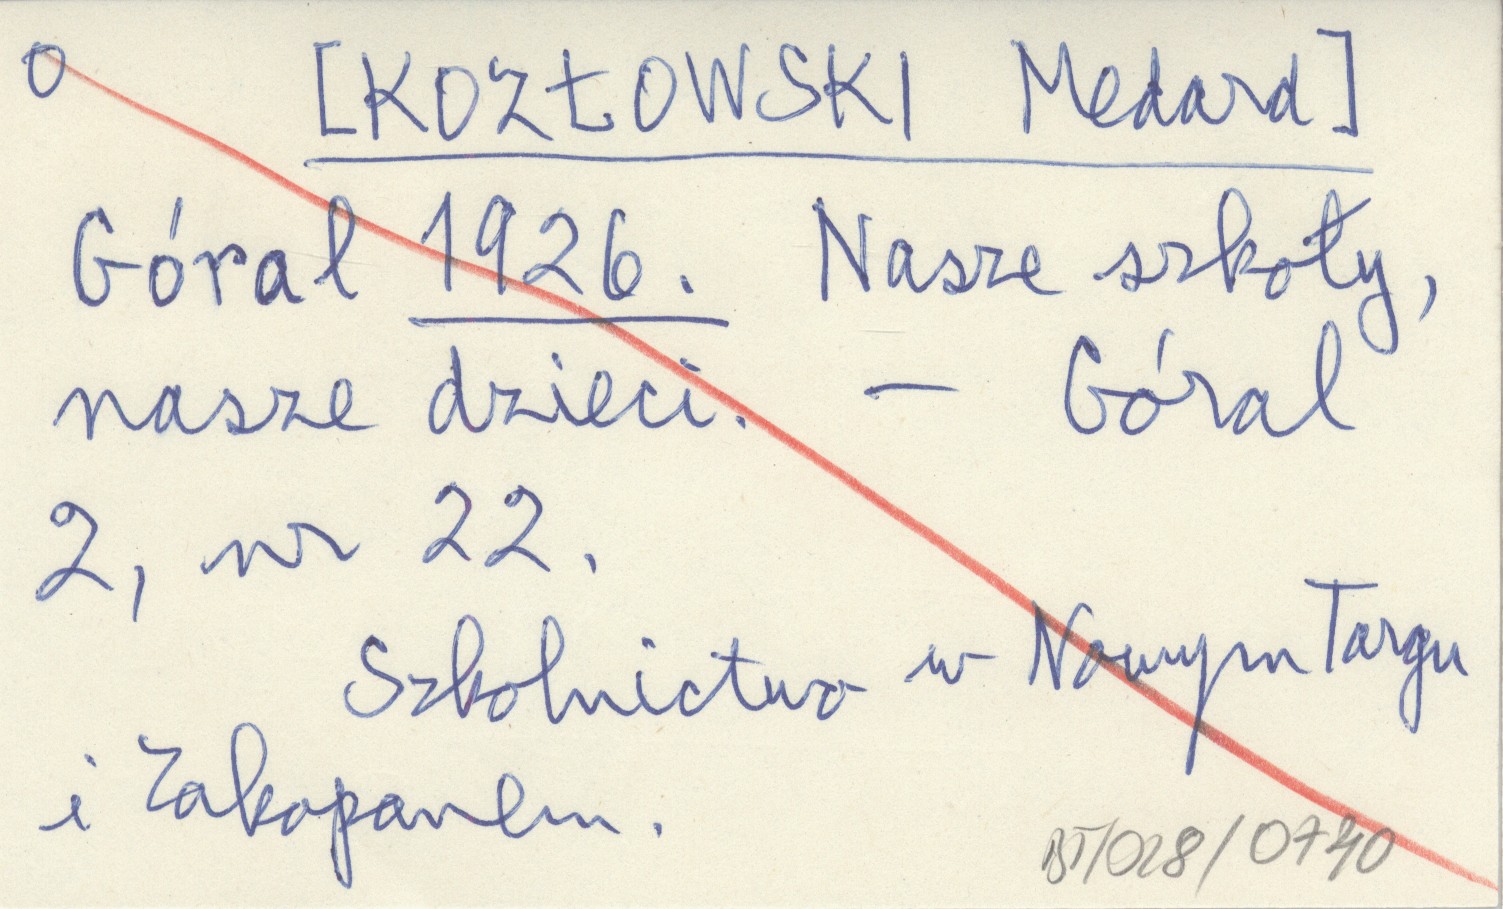 O [KOZŁOWSKI Medard]
Góral 1926. Nasze szkoły,
nasze dzieci. — Góral
2, nr 22.
Szkolnictwo w Nowym Targu
i Zakopanem.
BT/028/0740